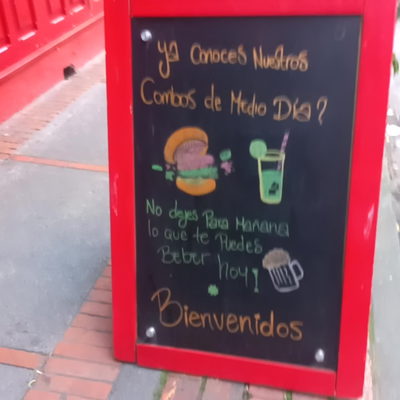 Ya Conoces Nuestros
Combos de Medio Día?
No dejes Para Mañana
lo que te Puedes
Beber hoy!
Bienvenidos